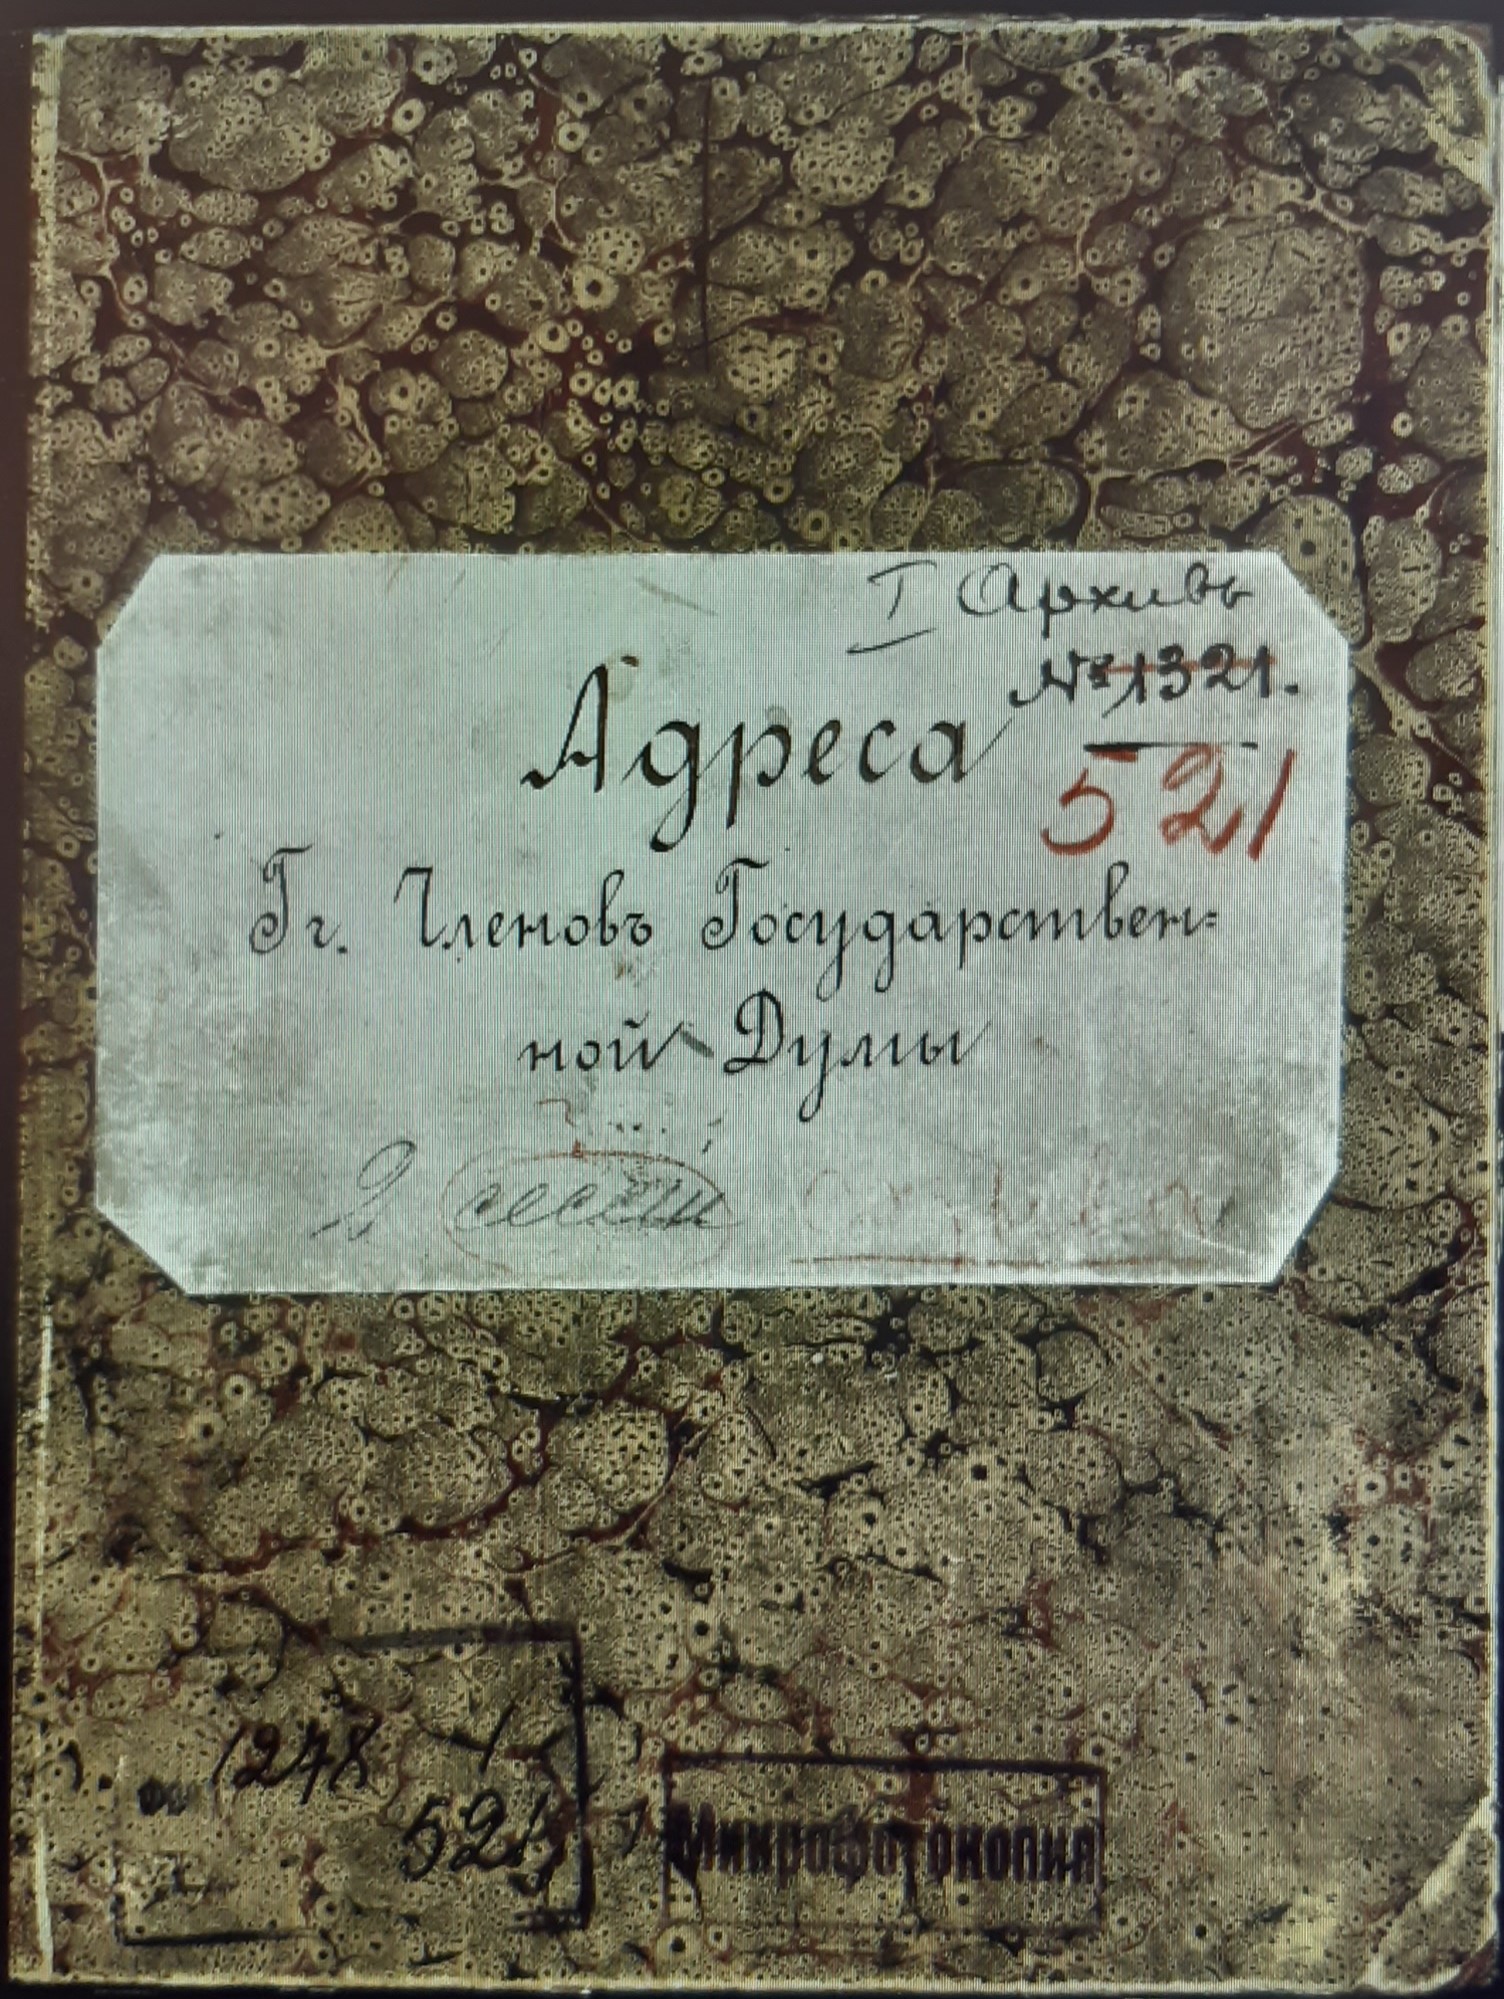 I Архивъ
№ 1321.
521
Адреса
Гг. Членовъ Государствен=
ной Думы
2 сессіи
1278
521
Микрофотокопия